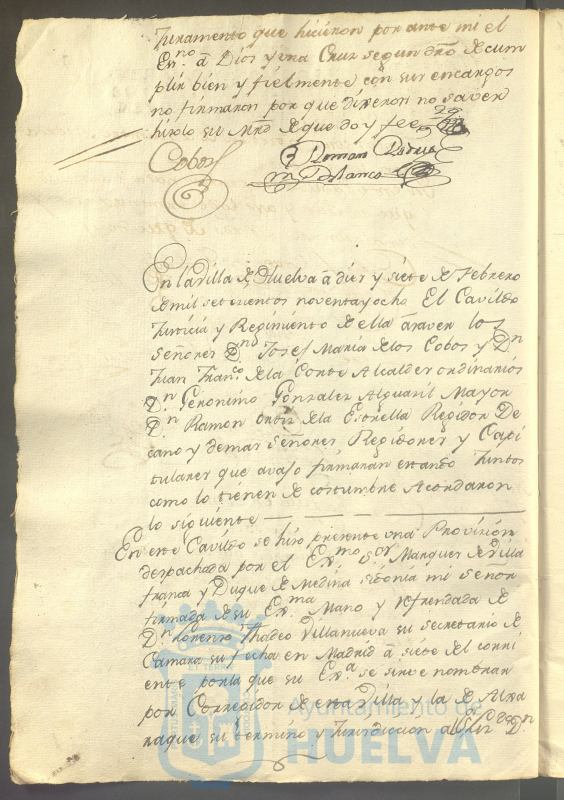 Juramento que hicieron por ante mi el
Esno. á Dios y una Cruz segun dro de cum
plir bien y fielmente con sus encargos
no firmaron por que dixeron no saver
hizolo su Mrd de que doy fee
Cobos
Roman
Blanco
En la Villa de Huelva á diez y siete de Febrero
de mil setecientos noventa y ocho El Cavildo
Justicia y Regimiento de ella á saver los
Señores Dn Josef Maria de los Cobos y Dn
Juan Franco. de la Corte Alcaldes ordinarios
Dn Geronimo Gonzalez Alguacil Mayor
Dn Ramon Ortiz de la Estrella Regidor De
cano y demas Señores Regidores y Capi
tulares que avajo firmaran estando Juntos
como lo tienen de costumbre Acordaron
lo siguiente
En este Cavildo se hizo presente una Provision
despachada por el Exmo Sor Marques de Villa
franca y Duque de Medina Sidonia mi Señor
firmada de su Exma Mano y refrendada de
Dn Lorenzo Thadeo Villanueva su secretario de
Camara su fecha en Madrid á siete del corri
ente por la que su Exa se sirve nombrar
por Corregidor de esta Villa y la de Aljra
raque su termino y Jurisdiccion al Sor Dn
Ayuntamiento de
HUELVA